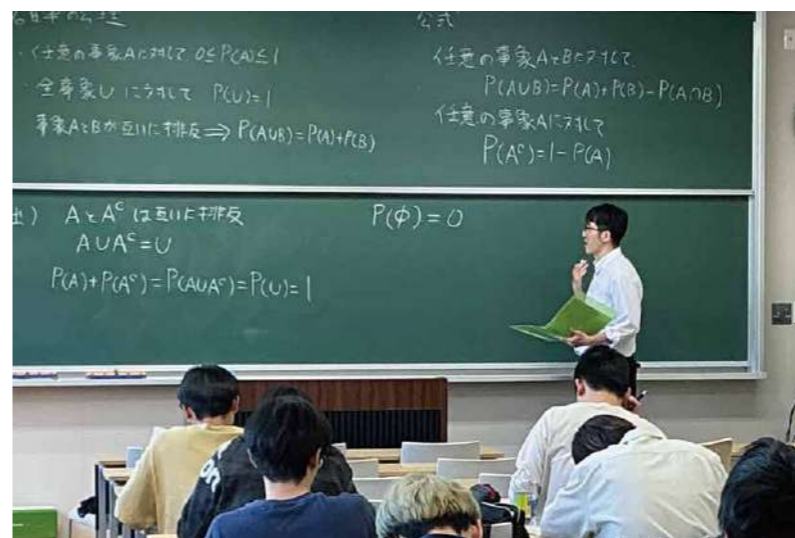 の公理
・任意の事象Aに対して 0≤P(A)≤1
・全事象U に対して P(U)=1
事象AとBが互いに排反⇒P(A∪B)=P(A)+P(B)
公式
任意の事象AとBに対して
P(A∪B)=P(A)+P(B)-P(A∩B)
任意の事象Aに対して
P(Aᶜ)=1-P(A)
) AとAᶜは互いに排反
A∪Aᶜ=U
P(A)+P(Aᶜ)=P(A∪Aᶜ)=P(U)=1
P(φ)=0